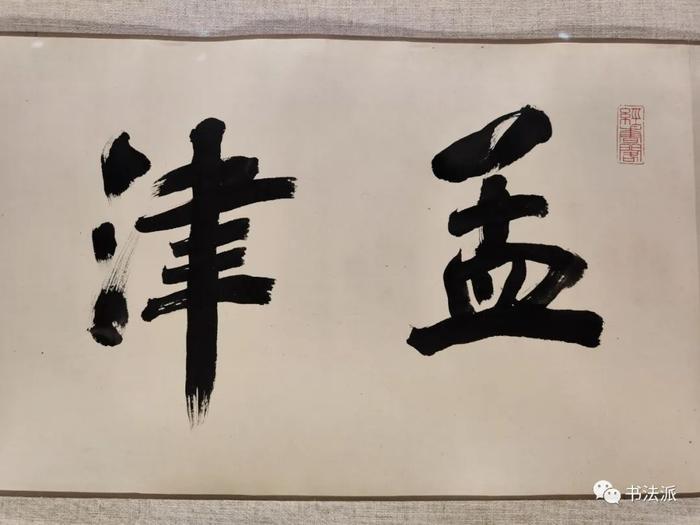 孟津
书法派